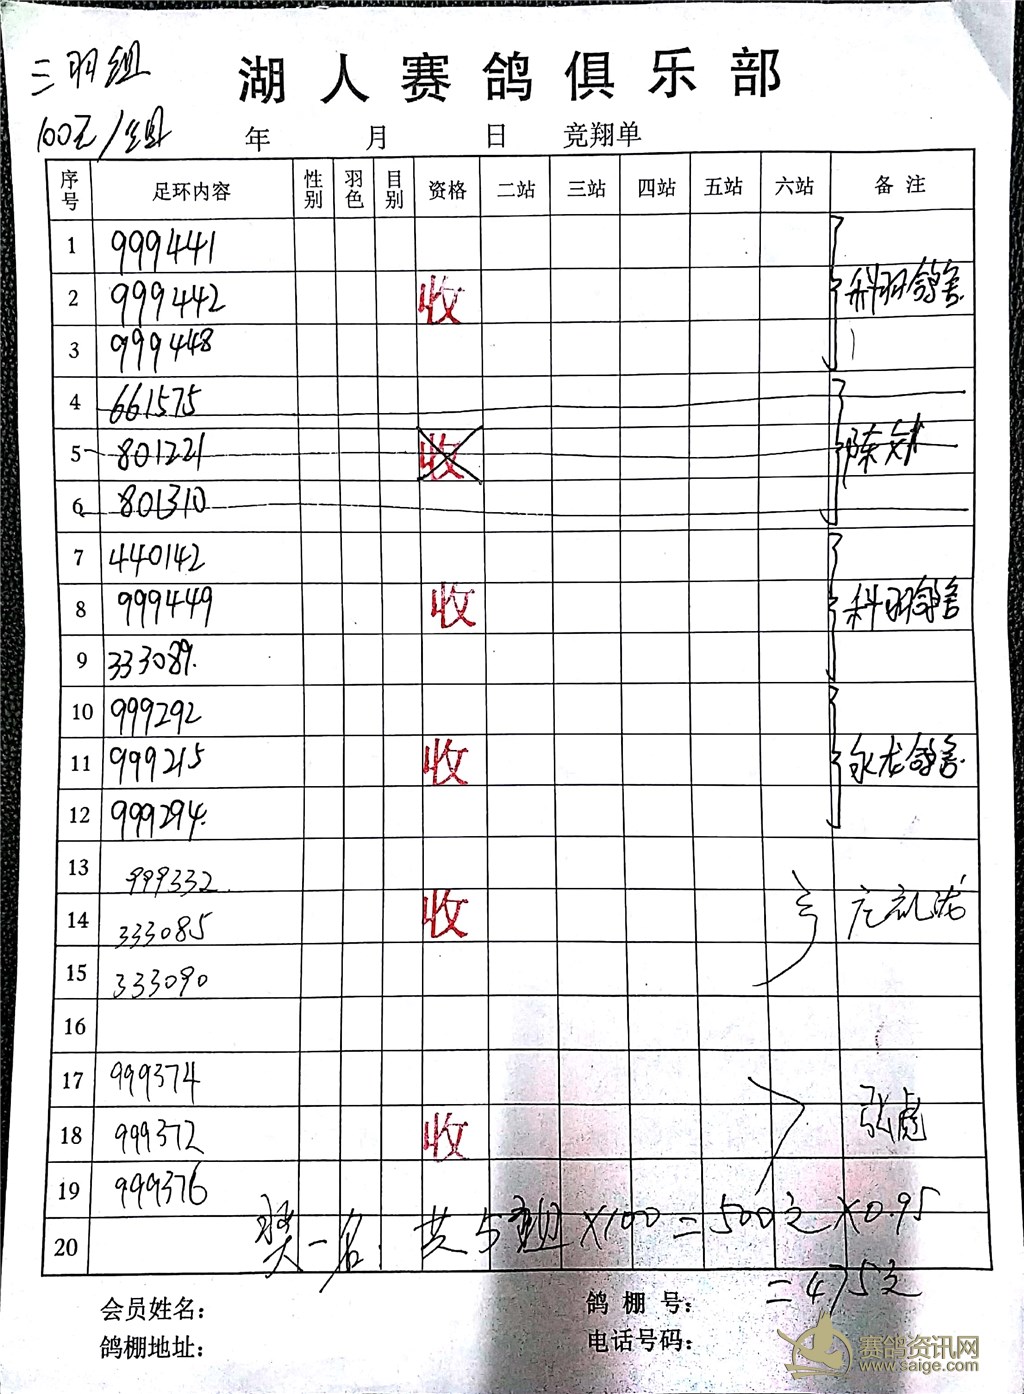 三羽组
湖人赛鸽俱乐部
100元/组 年 月 日 竞翔单
序号 足环内容 性别 羽色 目别 资格 二站 三站 四站 五站 六站 备注
1 999441
2 999442 收 科羽鸽舍
3 999448
4 661575
5 801221 收 陈
6 801310
7 440142
8 999449 收 科羽鸽舍
9 333089
10 999292
11 999215 收 永龙鸽舍
12 999294
13 999332
14 333085 收
15 333090
16
17 999374
18 999372 收 张彪
19 999376
奖一名 共5组×100=500元×0.95
20
=475元
会员姓名： 鸽棚号：
鸽棚地址： 电话号码：
赛鸽资讯网
www.saige.com